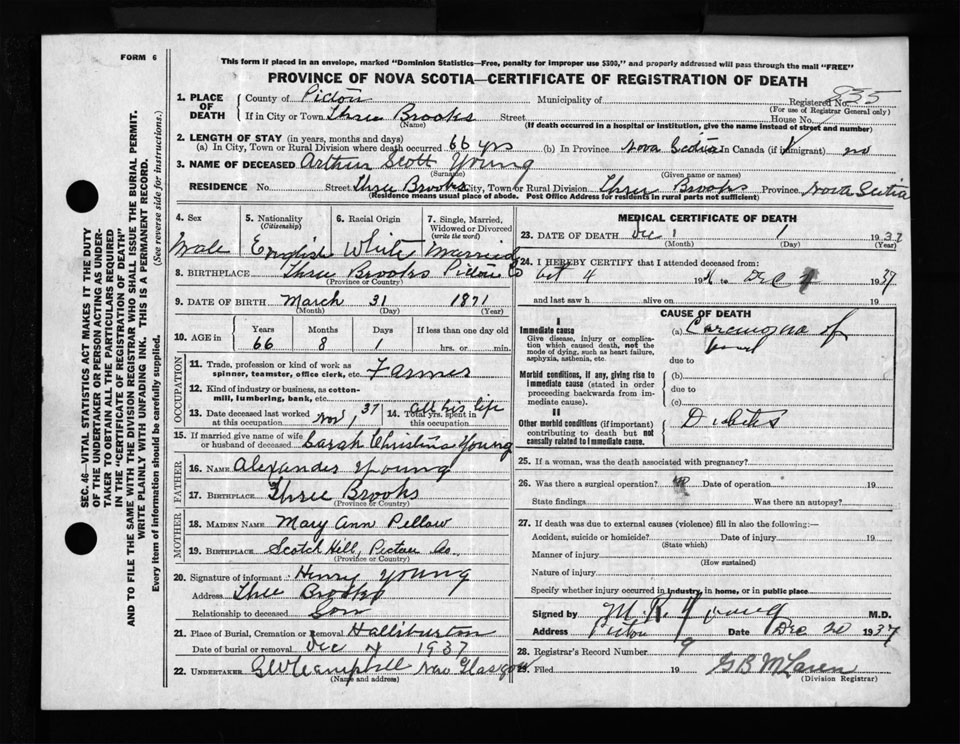 FORM 6
This form if placed in an envelope, marked "Dominion Statistics—Free, penalty for improper use $300," and properly addressed will pass through the mail "FREE"
PROVINCE OF NOVA SCOTIA—CERTIFICATE OF REGISTRATION OF DEATH
SEC. 46—VITAL STATISTICS ACT MAKES IT THE DUTY
OF THE UNDERTAKER OR PERSON ACTING AS UNDER-
TAKER TO OBTAIN ALL THE PARTICULARS REQUIRED
IN THE "CERTIFICATE OF REGISTRATION OF DEATH"
AND TO FILE THE SAME WITH THE DIVISION REGISTRAR WHO SHALL ISSUE THE BURIAL PERMIT.
WRITE PLAINLY WITH UNFADING INK. THIS IS A PERMANENT RECORD.
Every item of information should be carefully supplied. (See reverse side for instructions.)
1. PLACE OF DEATH County of Pictou Municipality of Registered No. 835
(For use of Registrar General only)
If in City or Town Three Brooks Street House No.
(Name) (If death occurred in a hospital or institution, give the name instead of street and number)
2. LENGTH OF STAY (in years, months and days)
(a) In City, Town or Rural Division where death occurred 66 yrs (b) In Province Nova Scotia In Canada (if immigrant) no
3. NAME OF DECEASED Arthur Scott Young
(Surname) (Given name or names)
RESIDENCE No. Street Three Brooks City, Town or Rural Division Three Brooks Province Nova Scotia
(Residence means usual place of abode. Post Office Address for residents in rural parts not sufficient)
4. Sex 5. Nationality (Citizenship) 6. Racial Origin 7. Single, Married, Widowed or Divorced (write the word)
Male English White Married
8. BIRTHPLACE Three Brooks Pictou Co
(Province or Country)
9. DATE OF BIRTH March 31 1871
(Month) (Day) (Year)
10. AGE in Years Months Days If less than one day old
66 8 1 hrs. or min.
OCCUPATION
11. Trade, profession or kind of work as spinner, teamster, office clerk, etc. Farmer
12. Kind of industry or business, as cotton-mill, lumbering, bank, etc.
13. Date deceased last worked at this occupation Nov 1, 37 14. Total yrs. spent in this occupation all his life
15. If married give name of wife or husband of deceased Sarah Christina Young
FATHER
16. NAME Alexander Young
17. BIRTHPLACE Three Brooks
MOTHER
18. MAIDEN NAME Mary Ann Pellow
19. BIRTHPLACE Scotch Hill, Pictou Co.
(Province or Country)
20. Signature of informant Henry Young
Address Three Brooks
Relationship to deceased Son
21. Place of Burial, Cremation or Removal Halliburton
Date of burial or removal Dec 4 1937
22. UNDERTAKER G W Campbell New Glasgow
(Name and address)
MEDICAL CERTIFICATE OF DEATH
23. DATE OF DEATH Dec 1 1937
(Month) (Day) (Year)
24. I HEREBY CERTIFY that I attended deceased from:
Oct 4 19 to Dec 1937
and last saw h alive on 19
CAUSE OF DEATH
I
Immediate cause (a) Carcinoma of
Give disease, injury or complica-
tion which caused death, not the
mode of dying, such as heart failure,
asphyxia, asthenia, etc. due to
Morbid conditions, if any, giving rise to (b)
immediate cause (stated in order due to
proceeding backwards from im-
mediate cause). (c)
II
Other morbid conditions (if important) Diabetes
contributing to death but not
causally related to immediate cause.
25. If a woman, was the death associated with pregnancy?
26. Was there a surgical operation? no Date of operation 19
State findings Was there an autopsy?
27. If death was due to external causes (violence) fill in also the following:—
Accident, suicide or homicide? Date of injury 19
(State which)
Manner of injury
(How sustained)
Nature of injury
Specify whether injury occurred in industry, in home, or in public place
Signed by M. R. Young M.D.
Address Pictou Date Dec 20 1937
28. Registrar's Record Number 9
29. Filed 19 G B McLaren
(Division Registrar)